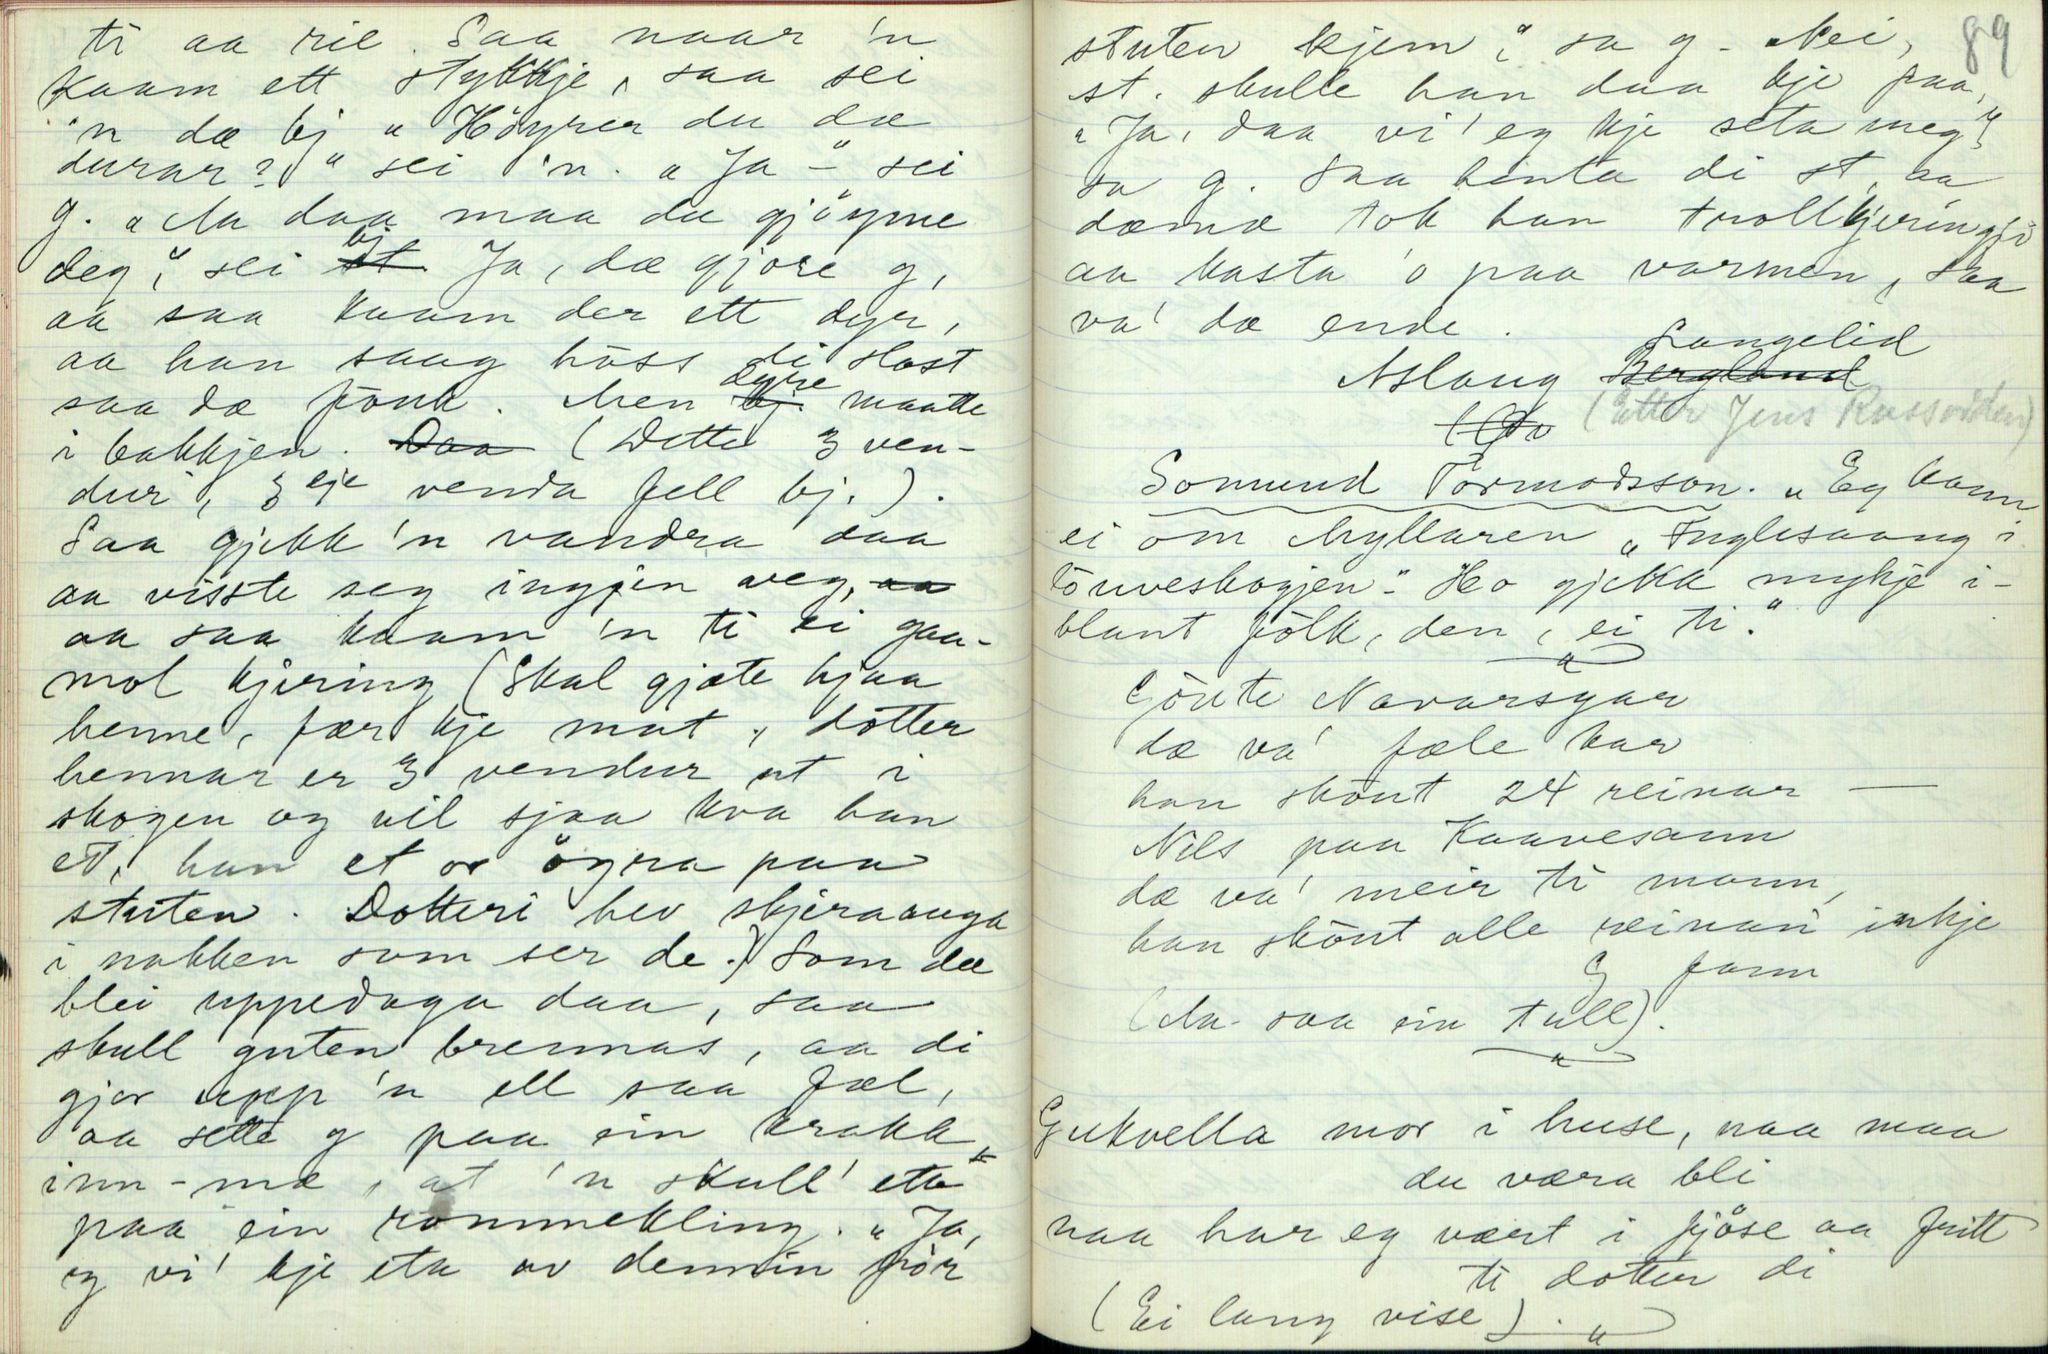 ti aa rie. Saa naar 'n
kaam ett stykkje, saa sei
'n dæ bj „Höyrer du dæ
durar?" sei 'n. „Ja –" sei
g. „Na daa maa du gjöyme
deg", sei st bj. Ja, dæ gjore g,
aa saa kaam der ett dyr,
aa han saag höss di slost
saa dæ fouk. Men bj. dyre maatte
i bakkjen. Daa (Dette 3 ven-
dur, 3eje venda fell bj.).
Saa gjekk 'n vandra daa
aa visste seg ingjin veg, aa
aa saa kaam 'n ti ei gaa-
mol kjering (Skal gjæte hjaa
henne, fær kje mat, dotter
hennar er 3 vendur ut i
skogen og vil sjaa kva han
et, han et or öyra paa
stuten. Dotteri hev skjeraauga
i nakken som ser de.) Som dæ
blei uppedaga daa, saa
skull guten brennas, aa di
gjor upp 'n ell saa fæl,
aa sette g paa ein krakk
inn-mæ, at 'n skull' eta
paa ein römmekling. „Ja,
eg vi' kje eta av dennin för
89
stuten kjem", sa g – Nei,
st. skulle han daa kje faa,
„Ja, daa vi' eg kje seta meg",
sa g. Saa henta di st, aa
dæmæ tok han trollkjeringji
aa kasta 'o paa varmen, saa
va' dæ ende.
Aslaug Bergland Langelid
(Etter Jens Russvikken)
Somund Tormodsson. „Eg kann
ei om Myllaren „Englesaang i
töuveskogjen". Ho gjekk mykje i-
blant fölk, den, ei ti."
Gönte Navarsgar
dæ va' fæle kar
han skönt 24 reinar —
Nils paa Kaavesann
dæ va' meir ti mann,
han skönt alle reinan inkje
G fann
(Na saa ein tull).
Gukvella mor i huse, naa maa
du væra bli
naa har eg vært i fjöse aa fritt
ti dotter di
(Ei lang vise).